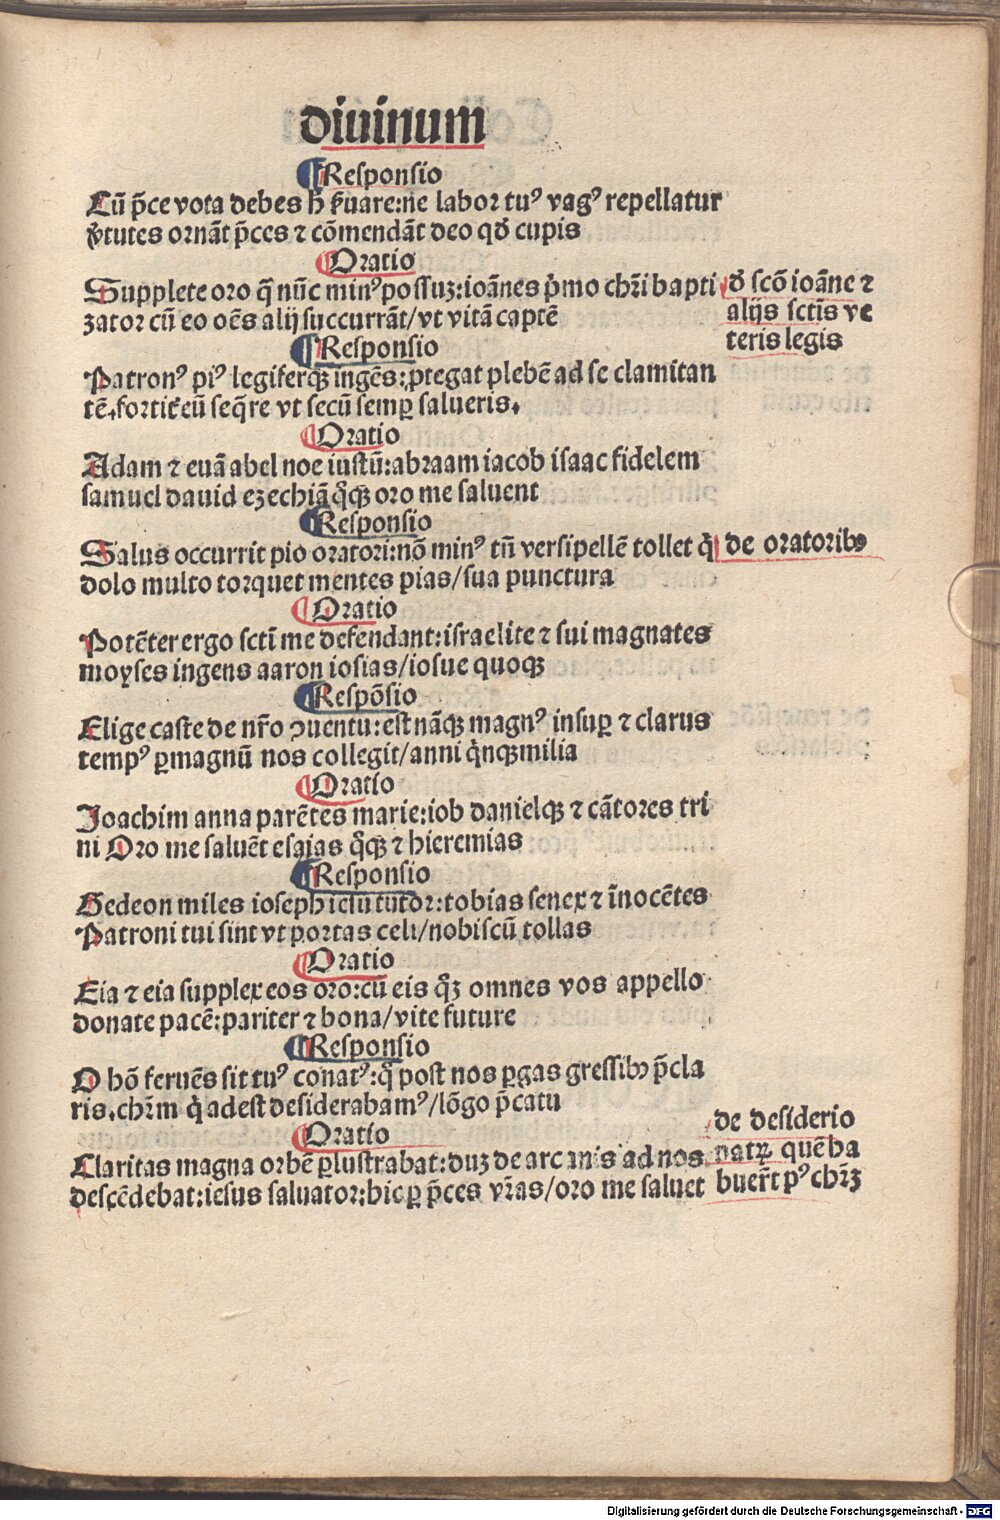 diuinum
¶Responsio
Cū p̄ce vota debes h̄ ẜuare:ne labor tuꝰ vagꝰ repellatur
v̓tutes ornāt p̄ces ⁊ cōmendāt deo qđ cupis
¶Oratio
Supplete oro q̄ nūc minꝰ possuꝫ:ioānes p̓mo chr̄i bapti
zator cū eo oēs alij succurrāt/vt vitā captē
đ scō ioāne ⁊
alijs sctīs ve
teris legis
¶Responsio
Patronꝰ piꝰ legiferqꝫ ingēs:ꝓtegat plebē ad se clamitan
tē.fortit̓ eū seq̄re vt secū semꝑ salueris.
¶Oratio
Adam ⁊ euā abel noe iustū:abraam iacob isaac fidelem
samuel dauid ezechiā q̊qꝫ oro me saluent
¶Responsio
Salus occurrit pio oratori:nō minꝰ tn̄ versipellē tollet q̓
dolo multo torquet mentes pias/sua punctura
de oratoribꝰ
¶Oratio
Potēter ergo sctī me defendant:israelite ⁊ sui magnates
moyses ingens aaron iosias/iosue quoqꝫ
¶Respōsio
Elige caste de nr̄o ꝯuentu:est nāqꝫ magnꝰ insuꝑ ⁊ clarus
tempꝰ ꝑmagnū nos collegit/anni q̓nqꝫ milia
¶Oratio
Joachim anna parētes marie:iob danielqꝫ ⁊ cātores tri
ni Oro me saluēt esaias q̊qꝫ ⁊ hieremias
¶Responsio
Gedeon miles ioseph iesu tutor:tobias senex ⁊ īnocētes
Patroni tui sint vt portas celi/nobiscū tollas
¶Oratio
Eia ⁊ eia supplex eos oro:cū eis q̊ꝫ omnes vos appello
donate pacē:pariter ⁊ bona/vite future
¶Responsio
O bō feruēs sit tuꝰ conatꝰ:q̊ post nos ꝑgas gressibꝰ p̄cla
ris.chr̄m q̓ adest desiderabamꝰ/lōgo p̄catu
¶Oratio
Claritas magna orbē ꝑlustrabat:duꝫ de arcanis ad nos
descēdebat:iesus saluator:hic ꝑ p̄ces vr̄as/oro me saluet
de desiderio
patꝝ quē ha
buer̄t pꝰ chr̄ꝫ
Digitalisierung gefördert durch die Deutsche Forschungsgemeinschaft - DFG